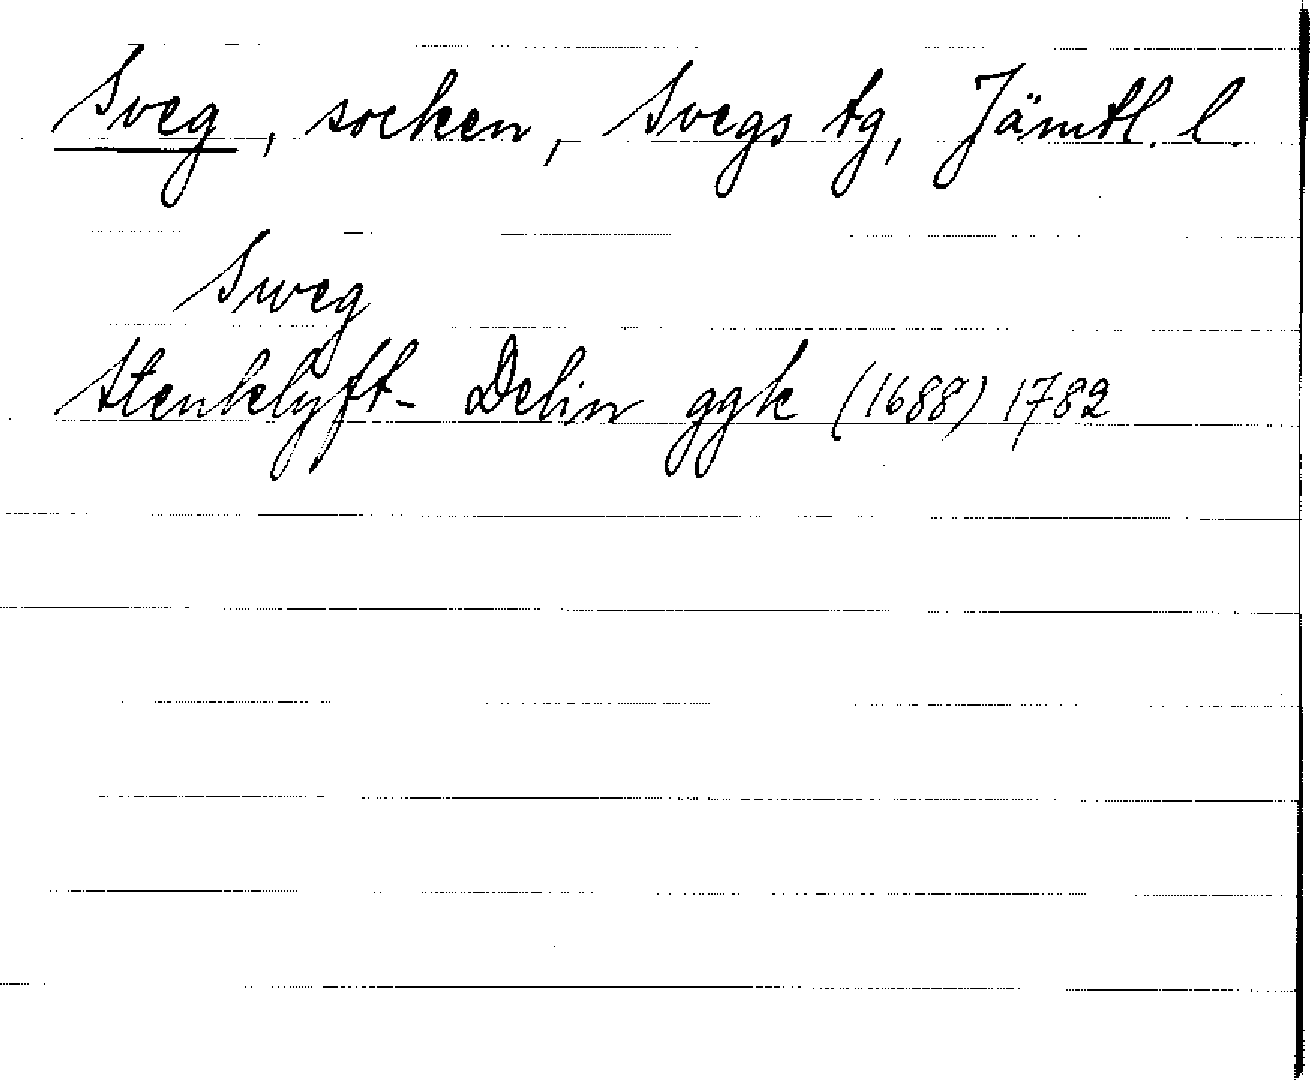 Sveg, socken, Svegs tg, Jämtl. l.
Sweg
Stenklyft- Delin ggk (1688) 1782